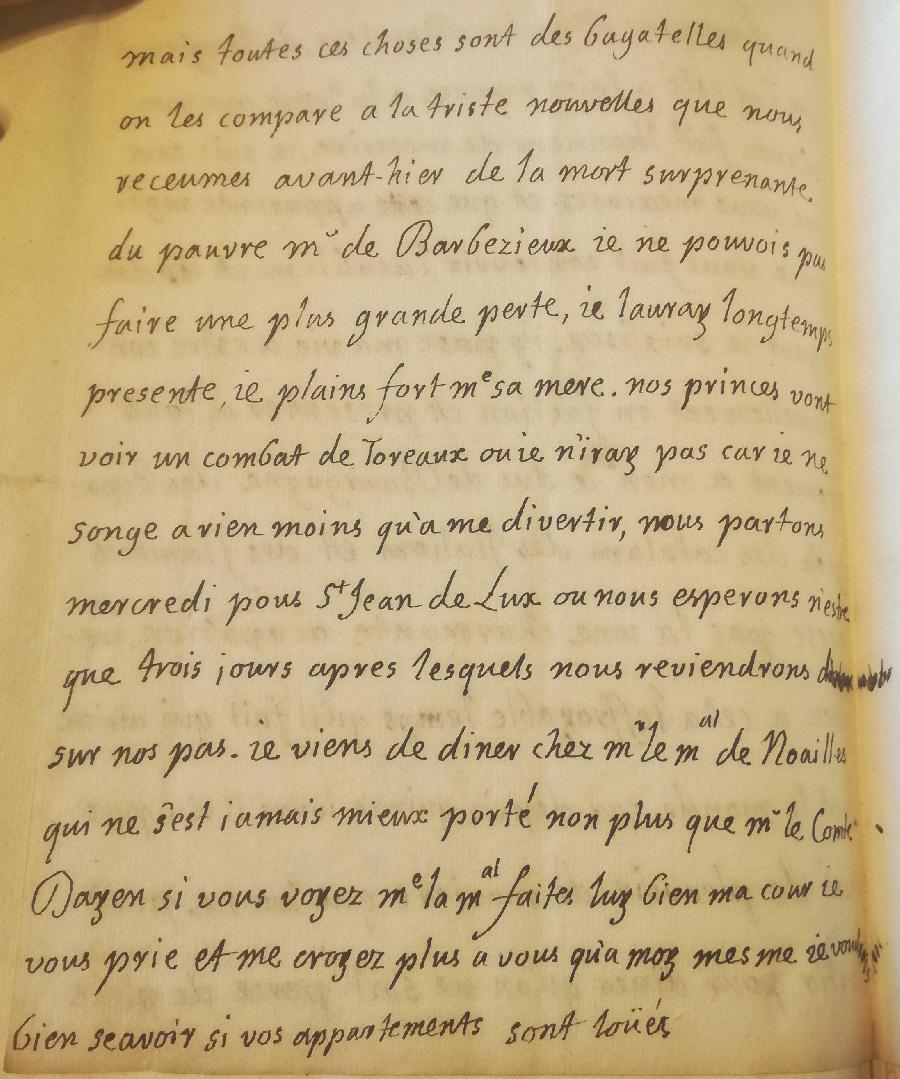 mais toutes ces choses sont des bagatelles quand
on les compare a la triste nouvelles que nous
receumes avant-hier de la mort surprenante
du pauvre mr de Barbezieux ie ne pouvois pas
faire une plus grande perte, ie lauray longtemps
presente, ie plains fort me sa mere. nos princes vont
voir un combat de Toreaux ou ie n'iray pas car ie ne
songe a rien moins qu'a me divertir, nous partons
mercredi pous St Jean de Lux ou nous esperons n'estre
que trois jours apres lesquels nous reviendrons
sur nos pas. ie viens de diner chez mr le mal de Noailles
qui ne s'est iamais mieux porté non plus que mr le Comte
Dayen si vous voyez me la mal faites luy bien ma cour ie
vous prie et me croyez plus a vous qu'a moy mesme ie
bien scavoir si vos appartements sont loüés